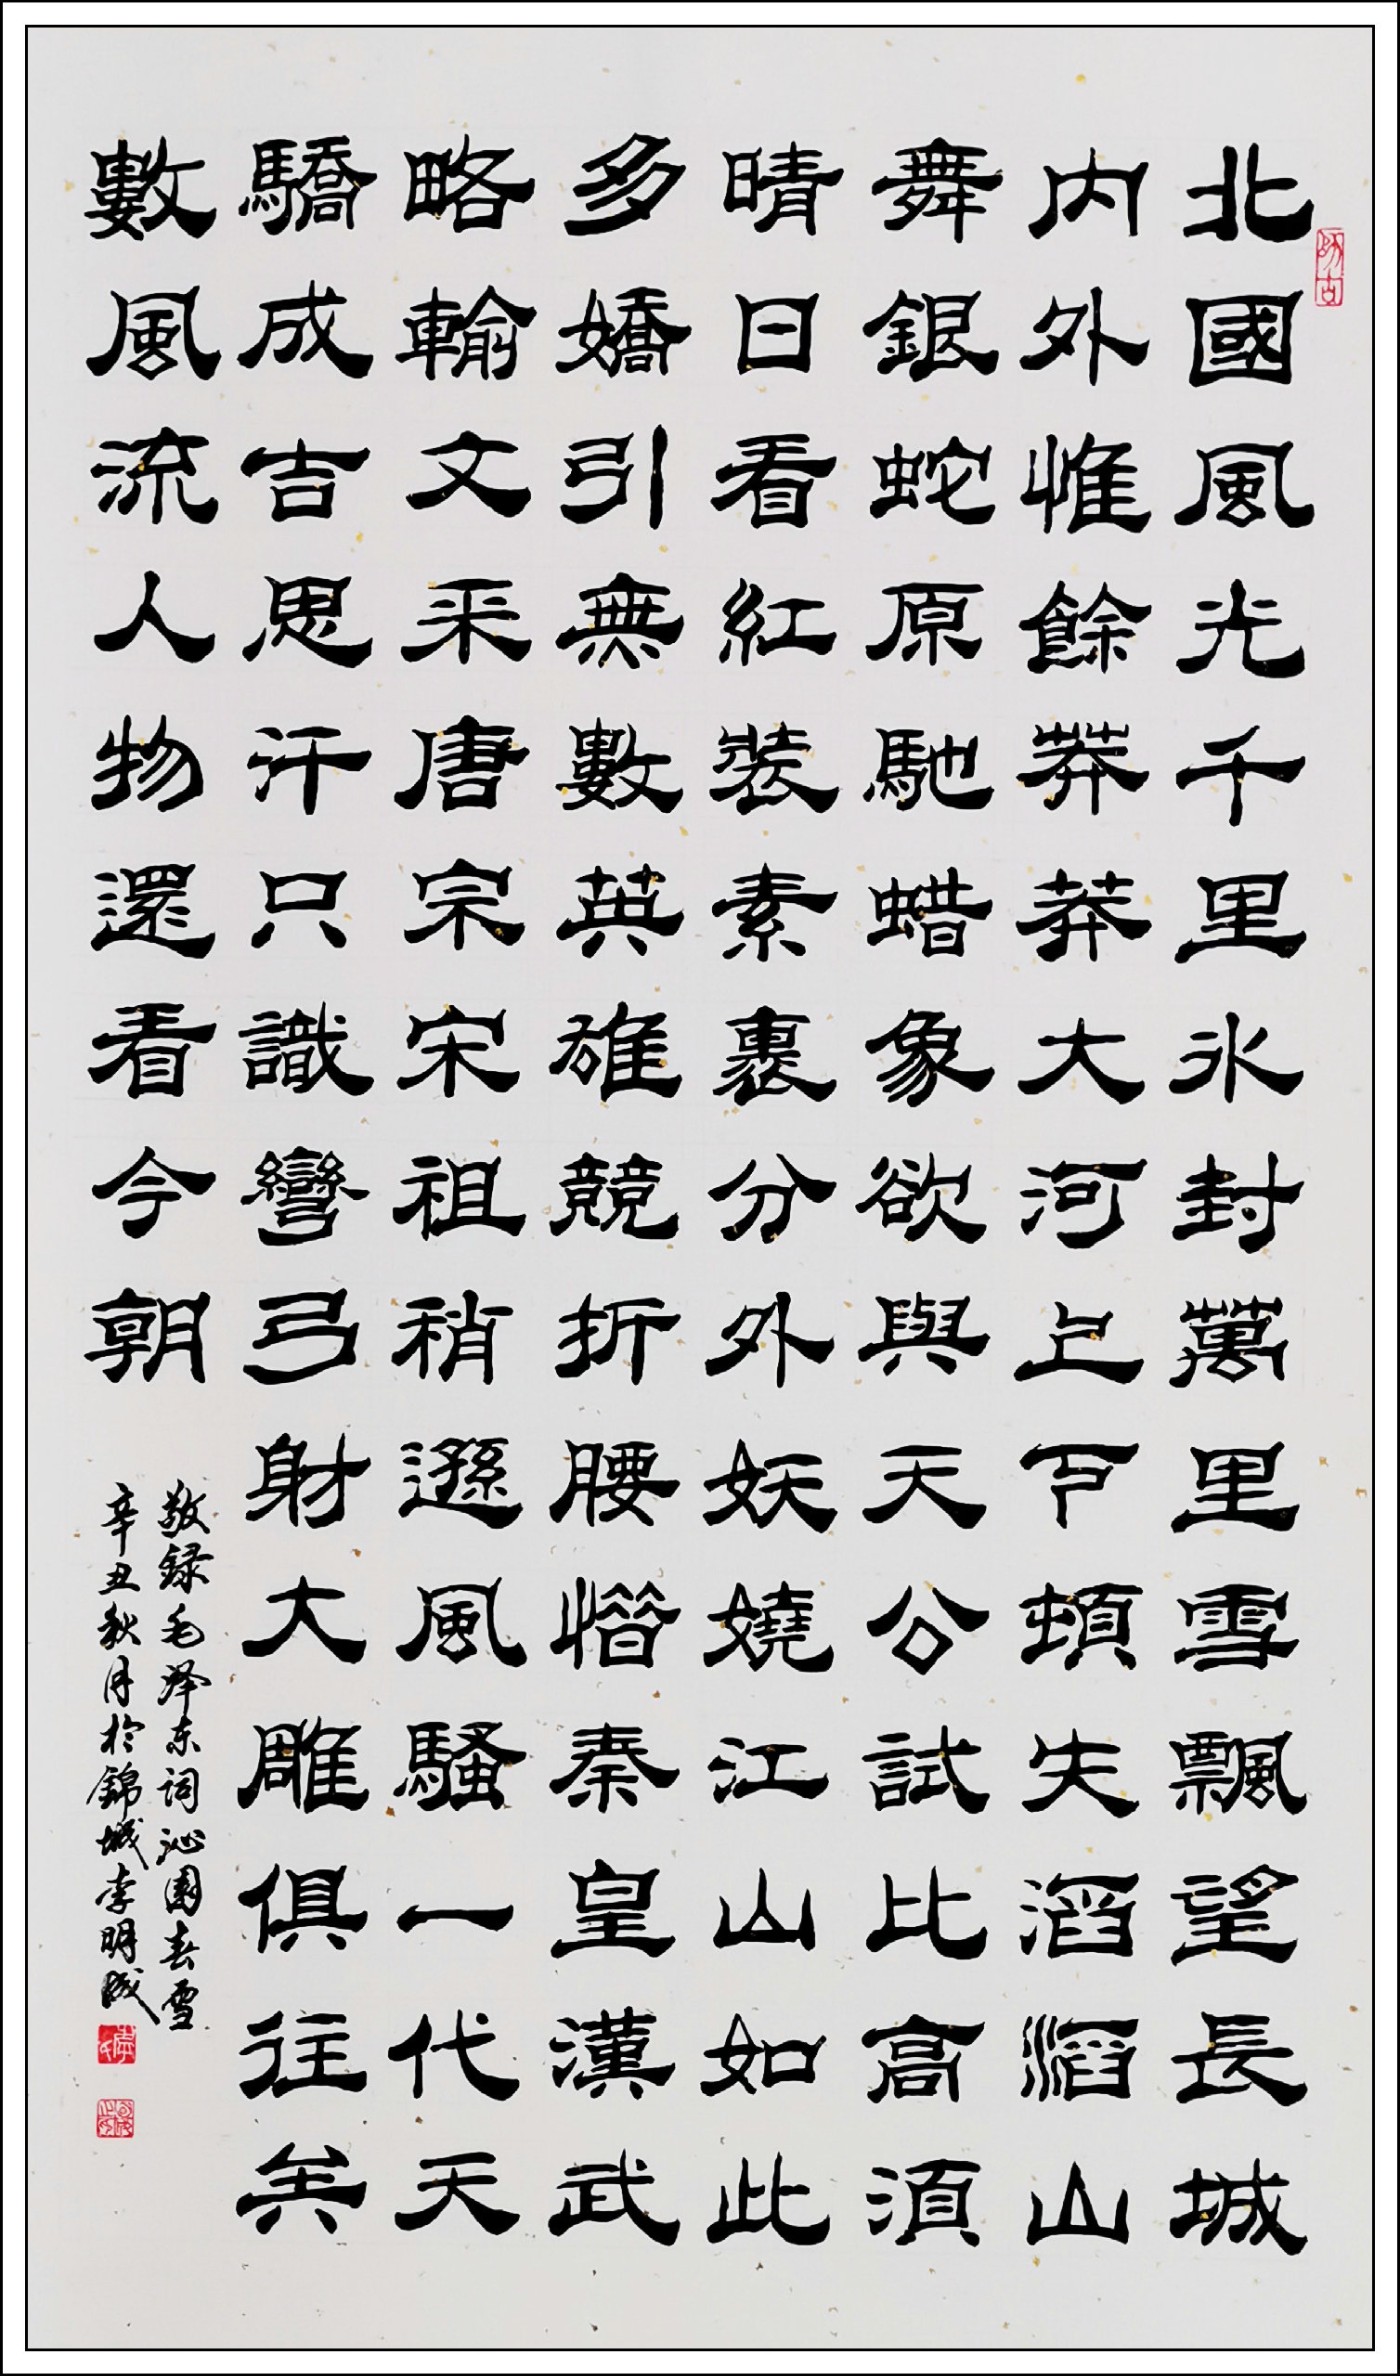 北國風光千里冰封萬里雪飄望長城
内外惟餘莽莽大河上下頓失滔滔山
舞銀蛇原馳蜡象欲與天公試比高須
晴日看紅裝素裹分外妖嬈江山如此
多嬌引無數英雄競折腰惜秦皇漢武
略輸文采唐宗宋祖稍遜風騷一代天
驕成吉思汗只識彎弓射大雕俱往矣
數風流人物還看今朝
敬録毛泽东词沁園春雪
辛丑秋月於錦城李明成